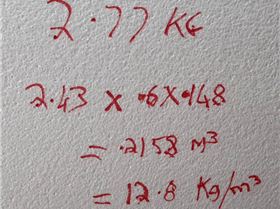 2.77 KG
2.43 x .6x.148
= .2158 m³
= 12.8 Kg/m³